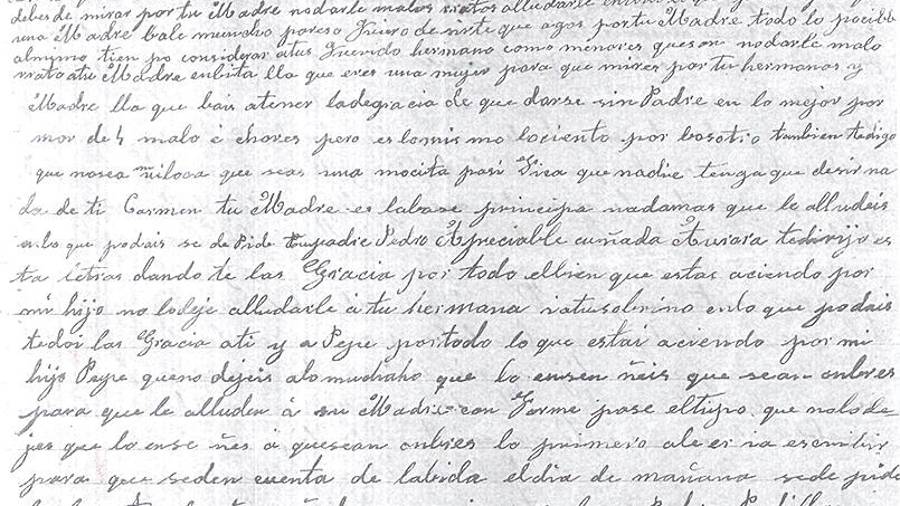 debes de mirar por tu Madre nodarle malos ratos alludarle
una Madre bale muncho por eso quiero de iste que agas por tu Madre todo lo pocible
almismo tienpo considerar atus querido hermano como menores queson nodarle malo
rrato atu Madre enbita lla que eres una mujer para que mires por tu hermanos y
Madre lla que bais atener ladegracia de que darse sin Padre en lo mejor por
mor de 4 malo e chores pero es lomis mo lociento por bosotro tanbien tedigo
que nosea ni loca que seas una mocita pasi Fica que nadie tenga que desir na
da de ti Carmen tu Madre es labase principa nadamas que le alludeis
enlo que podais se de Pide tupadre Pedro Apreciable cuñada Aurora tedirijo es
ta letras dando te las Gracia por todo elbien que estas aciendo por
mi hijo no lodeje alludarle a tu hermana iatusobrino enlo que podais
tedoi las Gracia ati y a Pepe portodo lo que estai aciendo por mi
hijo Pepe queno dejeis alomuchaho que lo ensen ñeis que sean onbres
para que le alluden á su Madre con Forme pase eltipo que nolo de
jes que lo ense ñes a quesean onbres lo primero aleer ia escribir
para que seden cuenta de labida eldia de mañana sede pide